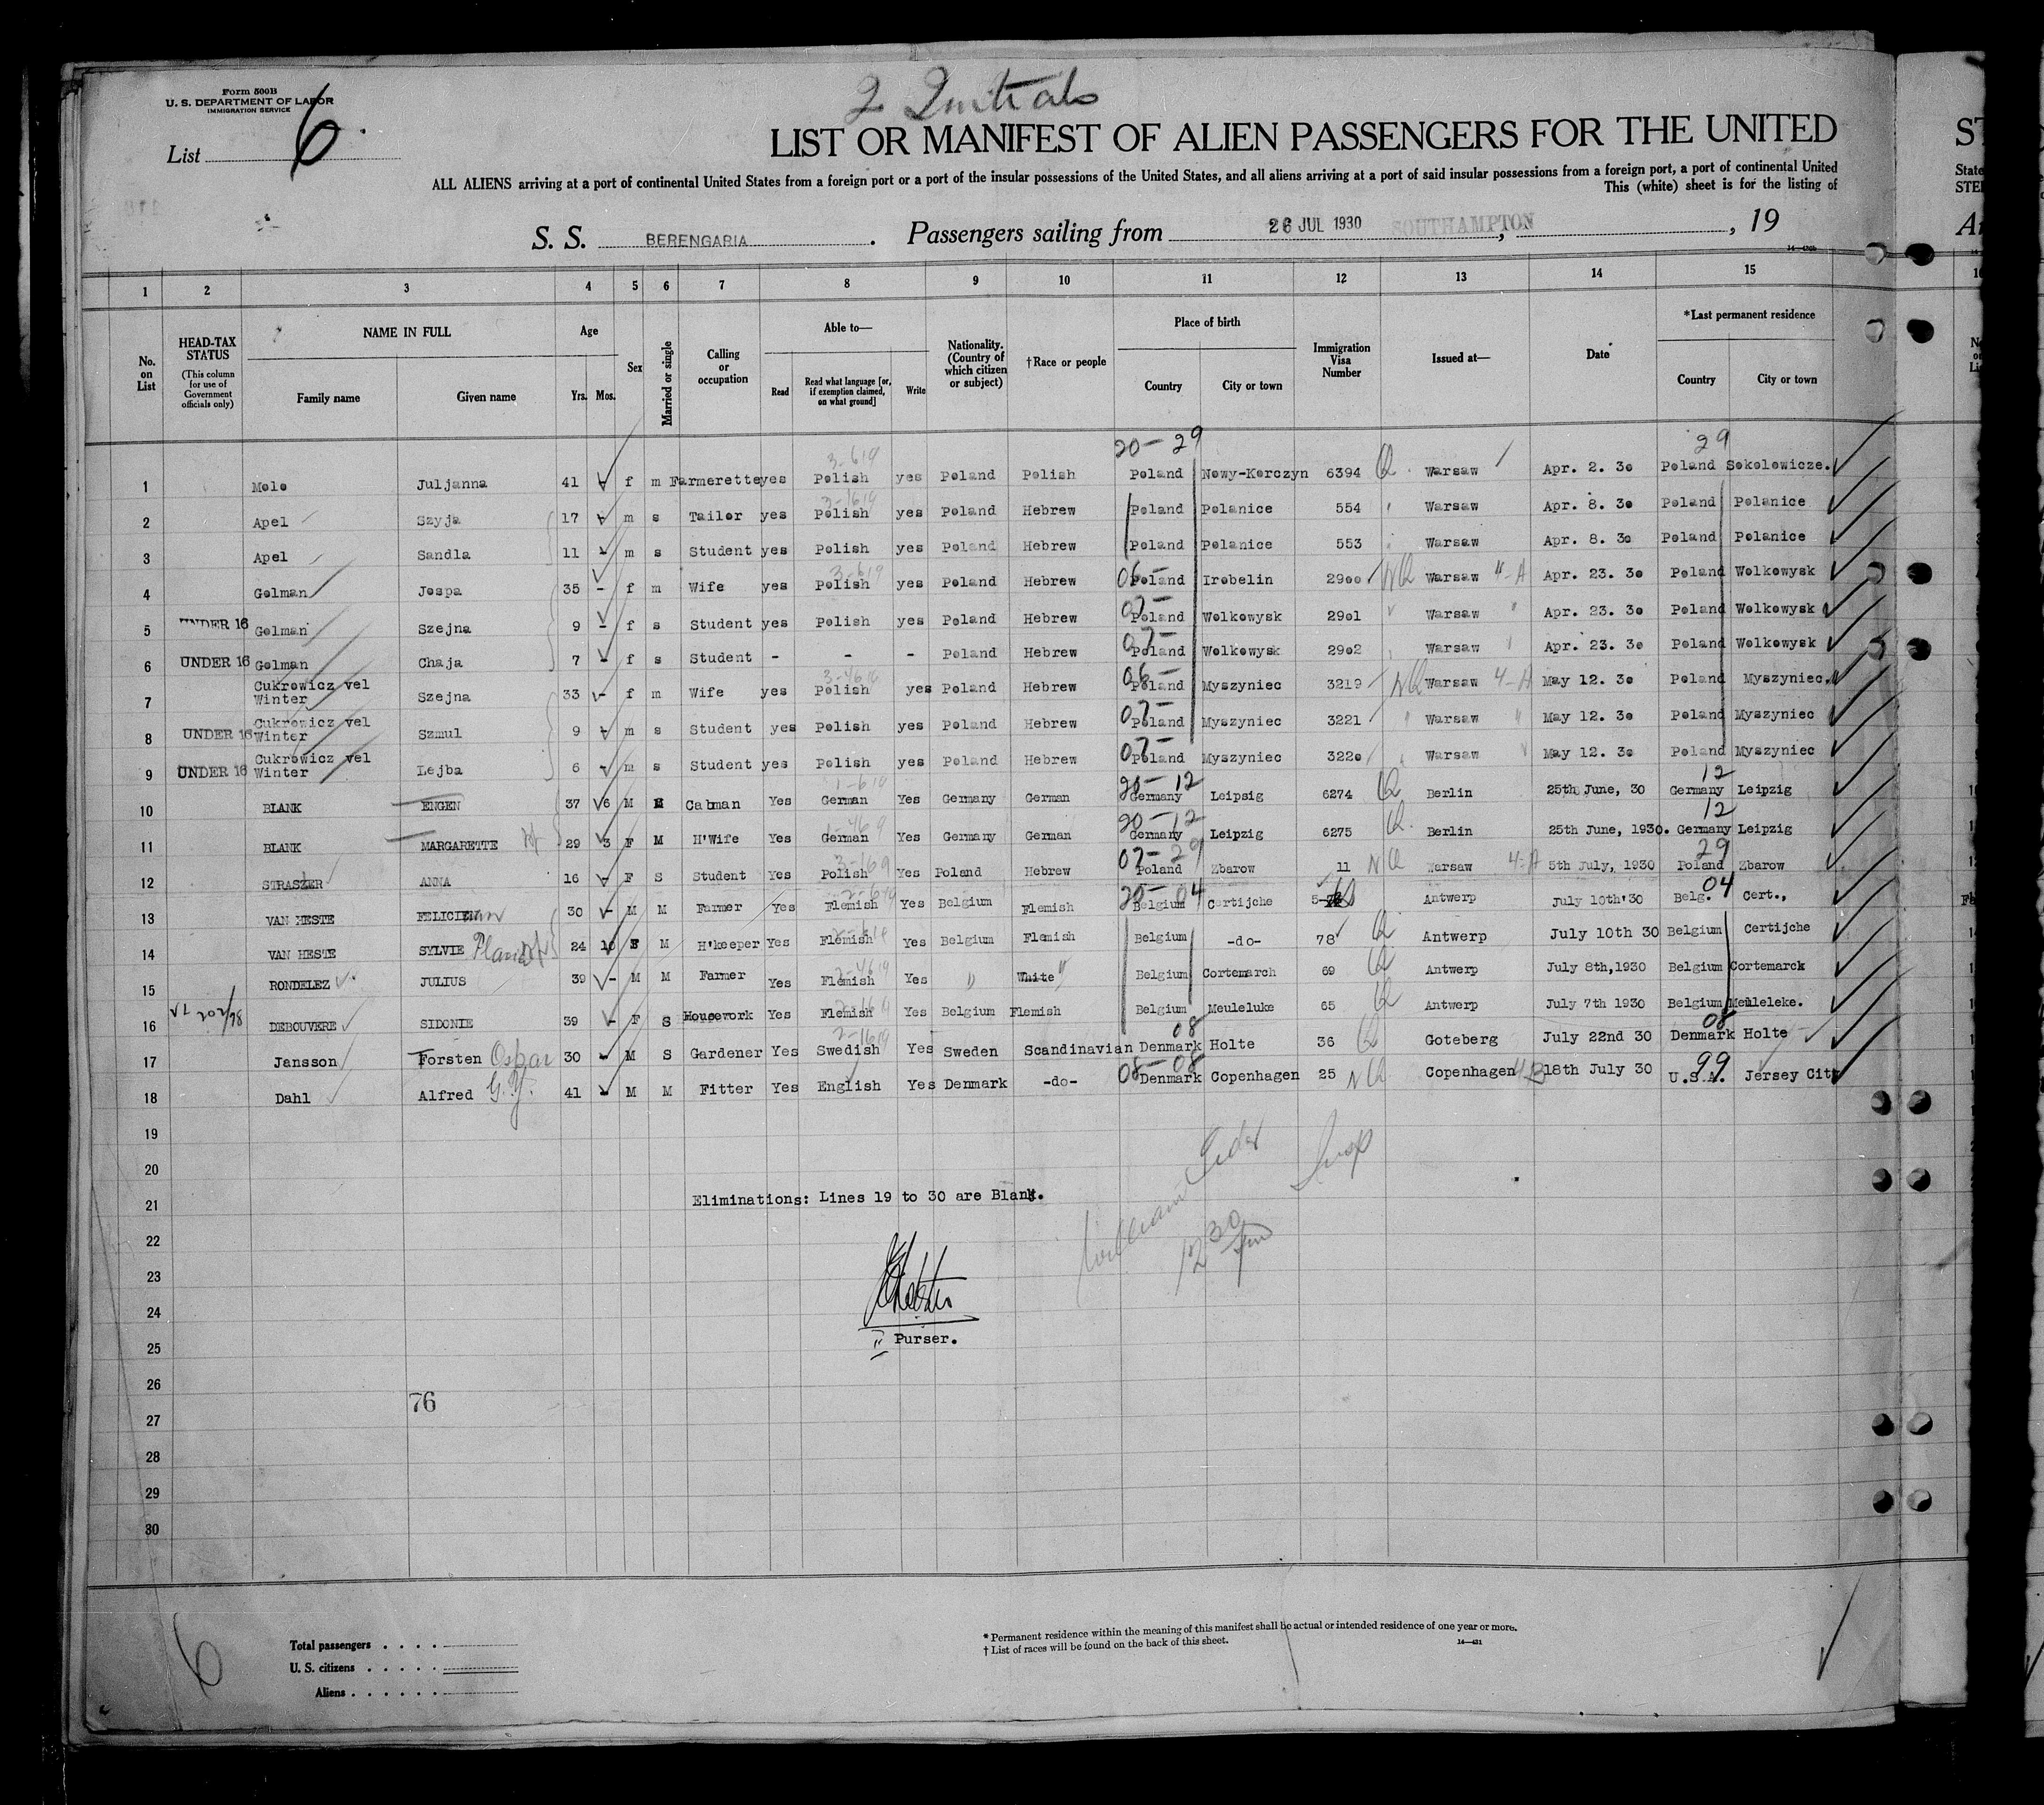 Form 500B
U. S. DEPARTMENT OF LABOR
IMMIGRATION SERVICE
List 6
2 Initials
LIST OR MANIFEST OF ALIEN PASSENGERS FOR THE UNITED
ALL ALIENS arriving at a port of continental United States from a foreign port or a port of the insular possessions of the United States, and all aliens arriving at a port of said insular possessions from a foreign port, a port of continental United
This (white) sheet is for the listing of
S. S. BERENGARIA. Passengers sailing from 26 JUL 1930 SOUTHAMPTON, , 19
1 2 3 4 5 6 7 8 9 10 11 12 13 14 15
No. on List HEAD-TAX STATUS (This column for use of Government officials only) NAME IN FULL Family name Given name Age Yrs. Mos. Sex Married or single Calling or occupation Able to— Read Read what language [or, if exemption claimed, on what ground] Write Nationality. (Country of which citizen or subject) †Race or people Place of birth Country City or town Immigration Visa Number Issued at— Date *Last permanent residence Country City or town
20-29 29
1 Molo Juljanna 41 f m Farmerette yes Polish yes Poland Polish Poland Nowy-Korczyn 6394 Q Warsaw Apr. 2. 30 Poland Sokolowicze.
2 Apel Szyja 17 - m s Tailor yes Polish yes Poland Hebrew Poland Polanice 554 Warsaw Apr. 8. 30 Poland Polanice
3 Apel Sandla 11 - m s Student yes Polish yes Poland Hebrew Poland Polanice 553 Warsaw Apr. 8. 30 Poland Polanice
4 Golman Jospa 35 - f m Wife yes Polish yes Poland Hebrew 06- Poland Irobelin 2900 NQ Warsaw 4-A Apr. 23. 30 Poland Wolkowysk
5 UNDER 16 Golman Szejna 9 - f s Student yes Polish yes Poland Hebrew 07- Poland Wolkowysk 2901 Warsaw " Apr. 23. 30 Poland Wolkowysk
6 UNDER 16 Golman Chaja 7 - f s Student - - - Poland Hebrew 07- Poland Wolkowysk 2902 Warsaw " Apr. 23. 30 Poland Wolkowysk
7 Cukrowicz vel Winter Szejna 33 - f m Wife yes Polish yes Poland Hebrew 06- Poland Myszyniec 3219 NQ Warsaw 4-A May 12. 30 Poland Myszyniec.
8 UNDER 16 Cukrowicz vel Winter Szmul 9 - m s Student yes Polish yes Poland Hebrew 07- Poland Myszyniec 3221 " Warsaw " May 12. 30 Poland Myszyniec
9 UNDER 16 Cukrowicz vel Winter Lejba 6 - m s Student yes Polish yes Poland Hebrew 07- Poland Myszyniec 3220 Warsaw May 12. 30 Poland Myszyniec
10 BLANK ENGEN 37 6 M M Cabman Yes German Yes Germany German 20-12 Germany Leipsig 6274 Q Berlin 25th June, 30 12 Germany Leipzig
11 BLANK MARGARETTE 29 3 F M H'Wife Yes German Yes Germany German 20-12 Germany Leipzig 6275 Q. Berlin 25th June, 1930. 12 Germany Leipzig
12 STRASZER ANNA 16 - F S Student Yes Polish Yes Poland Hebrew 07-29 Poland Zbarow 11 NQ Warsaw 4-A 5th July, 1930 29 Poland Zbarow
13 VAN HESTE FELICIEN 30 - M M Farmer Yes Flemish Yes Belgium Flemish 20-04 Belgium Certijche Antwerp July 10th'30 04 Belg. Cert.,
14 VAN HESTE SYLVIE 24 10 F M H'keeper Yes Flemish Yes Belgium Flemish Belgium -do- 78 Q Antwerp July 10th 30 Belgium Certijche
15 RONDELEZ JULIUS 39 - M M Farmer Yes Flemish Yes " White " Belgium Cortemarch 69 Q Antwerp July 8th,1930 Belgium Cortemarck
16 DEBOUVERE SIDONIE 39 - F S Housework Yes Flemish Yes Belgium Flemish Belgium Meuleluke 65 Q Antwerp July 7th 1930 Belgium Meuleleke.
17 Jansson Forsten Oskar 30 - M S Gardener Yes Swedish Yes Sweden Scandinavian 08 Denmark Holte 36 Q Goteberg July 22nd 30 08 Denmark Holte
18 Dahl Alfred G.Y. 41 - M M Fitter Yes English Yes Denmark -do- 08-08 Denmark Copenhagen 25 NQ Copenhagen 4-B 18th July 30 99 U.S.A. Jersey City
19
20
21 Eliminations: Lines 19 to 30 are Blank.
William Insp
12 30 pm
22
23
24
25 Purser.
26
76
27
28
29
30
6
Total passengers . . . .
U. S. citizens . . . . .
Aliens . . . . . .
* Permanent residence within the meaning of this manifest shall be actual or intended residence of one year or more.
† List of races will be found on the back of this sheet.
14—431